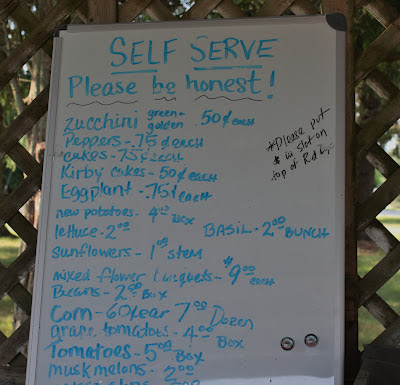 SELF SERVE
Please be honest!
zucchini green + golden .50¢ each
Peppers - .75¢ each
cakes - .75¢ each
Kirby cukes - 50¢ each
Eggplant - .75¢ each
new potatoes - 4.00 Box
lettuce - 2.00 BASIL - 2.00 BUNCH
sunflowers - 1.00 stem
mixed flower $9.00 each
Beans - 2.00 Box
Corn - 7.00 Dozen
grape tomatoes - 4.00 Box
Tomatoes - 5.00 Box
musk melons - 2.00
*Please put
$ in slot on
top of Red